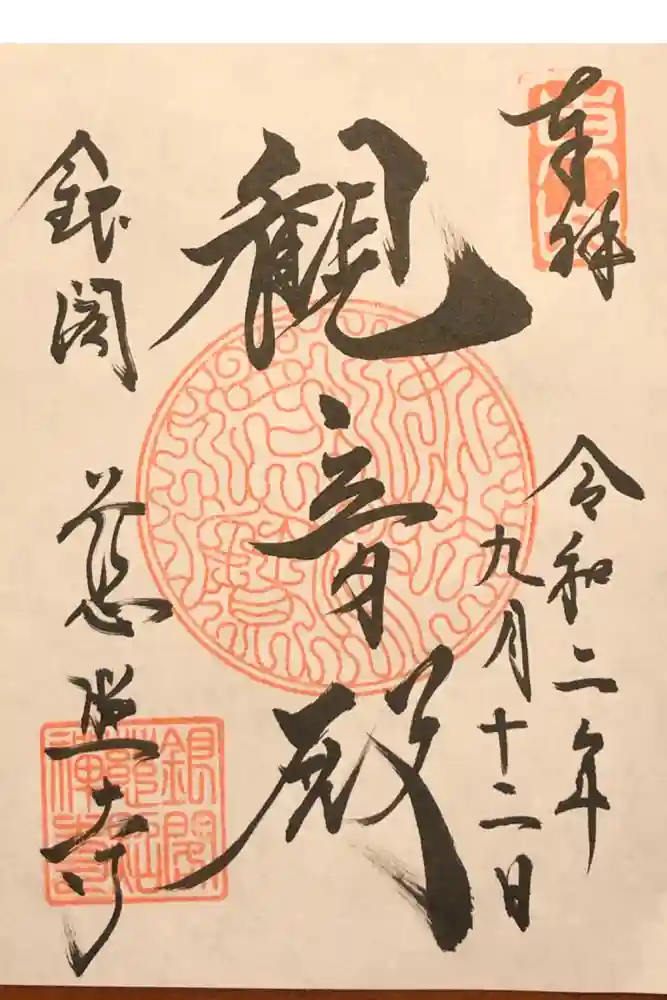 奉拝
令和二年
九月十二日
観音殿
銀閣
慈照寺
銀閣
慈照
禅寺